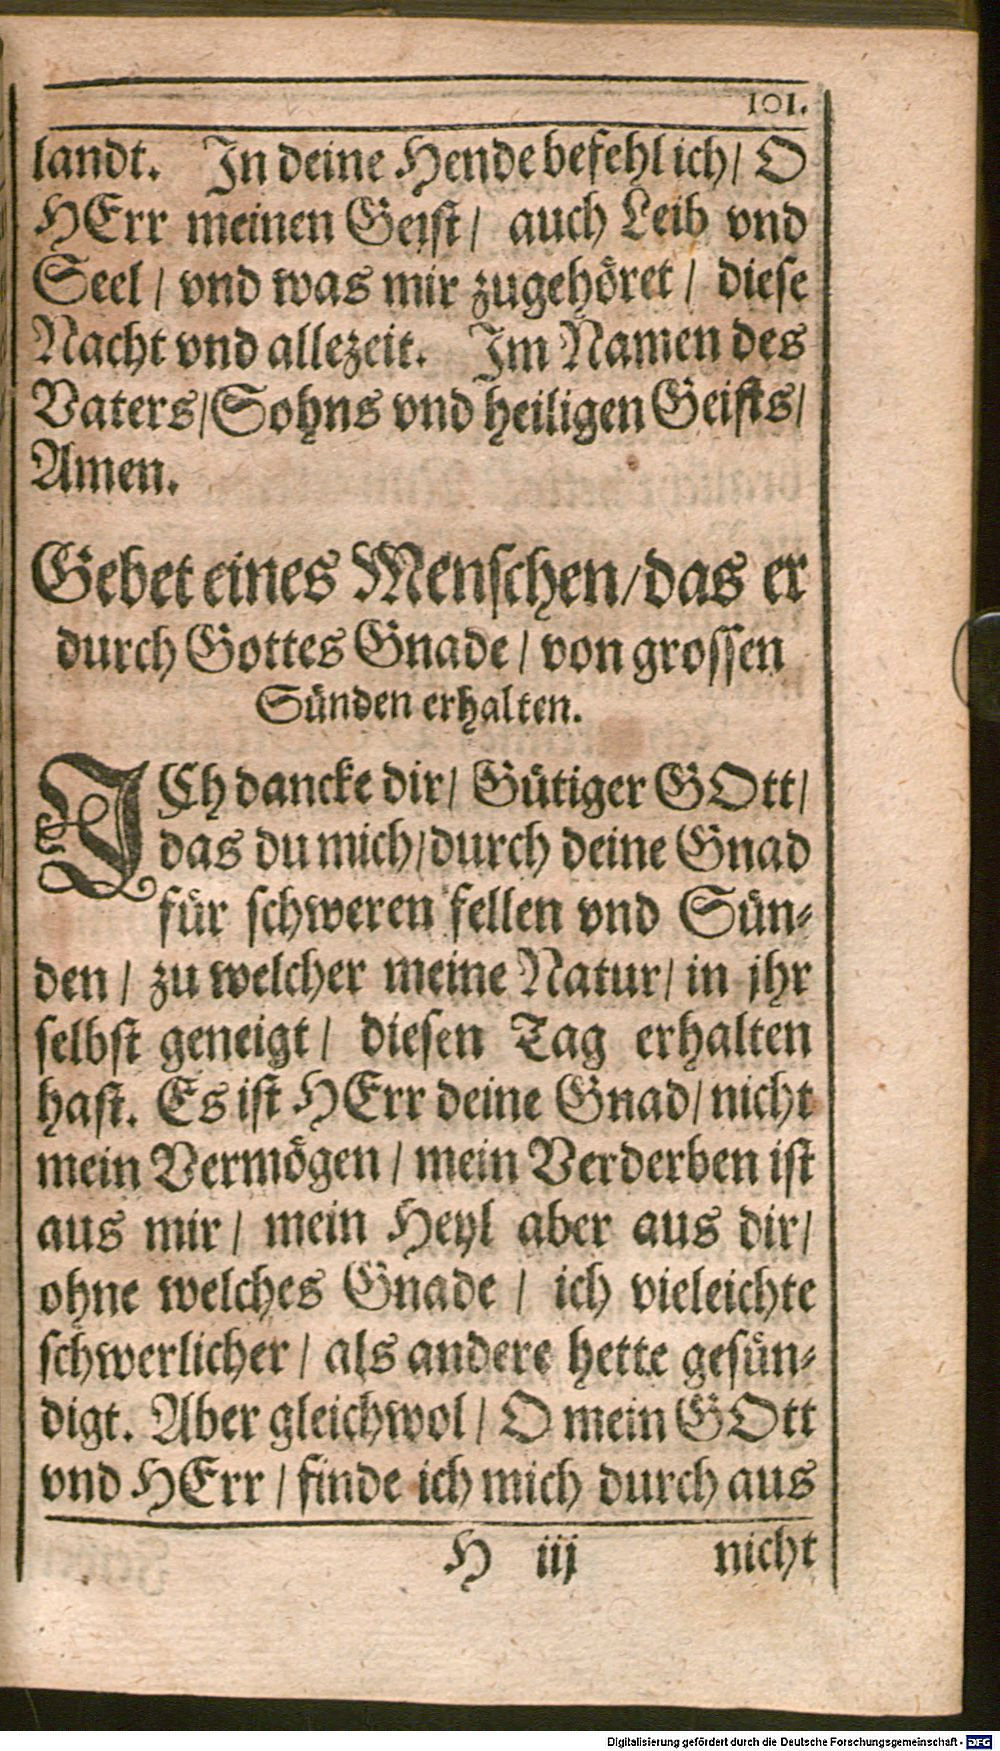 101.
landt. In deine Hende befehl ich/ O
HErr meinen Geist/ auch Leib vnd
Seel/ vnd was mir zugehöret/ diese
Nacht vnd allezeit. Im Namen des
Vaters/ Sohns vnd heiligen Geists/
Amen.
Gebet eines Menschen/ das er
durch Gottes Gnade/ von grossen
Sünden erhalten.
ICh dancke dir/ Gütiger GOtt/
das du mich/ durch deine Gnad
für schweren fellen vnd Sün-
den/ zu welcher meine Natur/ in jhr
selbst geneigt/ diesen Tag erhalten
hast. Es ist HErr deine Gnad/ nicht
mein Vermögen/ mein Verderben ist
aus mir/ mein Heyl aber aus dir/
ohne welches Gnade/ ich vieleichte
schwerlicher/ als andere hette gesün-
digt. Aber gleichwol/ O mein GOtt
vnd HErr/ finde ich mich durch aus
H iij nicht
Digitalisierung gefördert durch die Deutsche Forschungsgemeinschaft - DFG